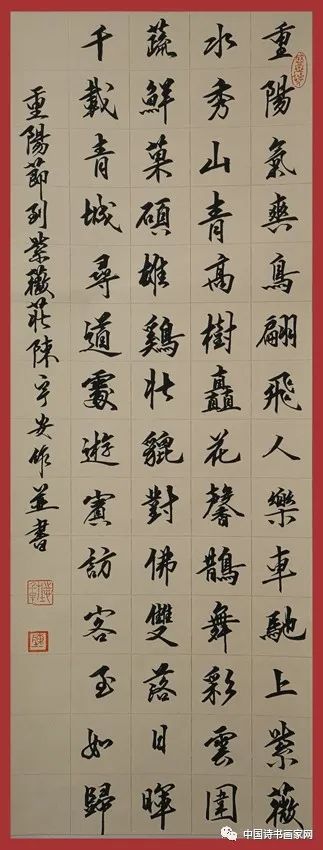 重陽氣爽鳥翩飛人樂車馳上紫薇
水秀山青高樹矗花馨鵲舞彩雲圍
蔬鮮菓碩雄鷄壯貔對佛雙落日暉
千載青城尋道處遊賓訪客至如歸
重陽節到紫薇莊陳宇安作並書
中国诗书画家网